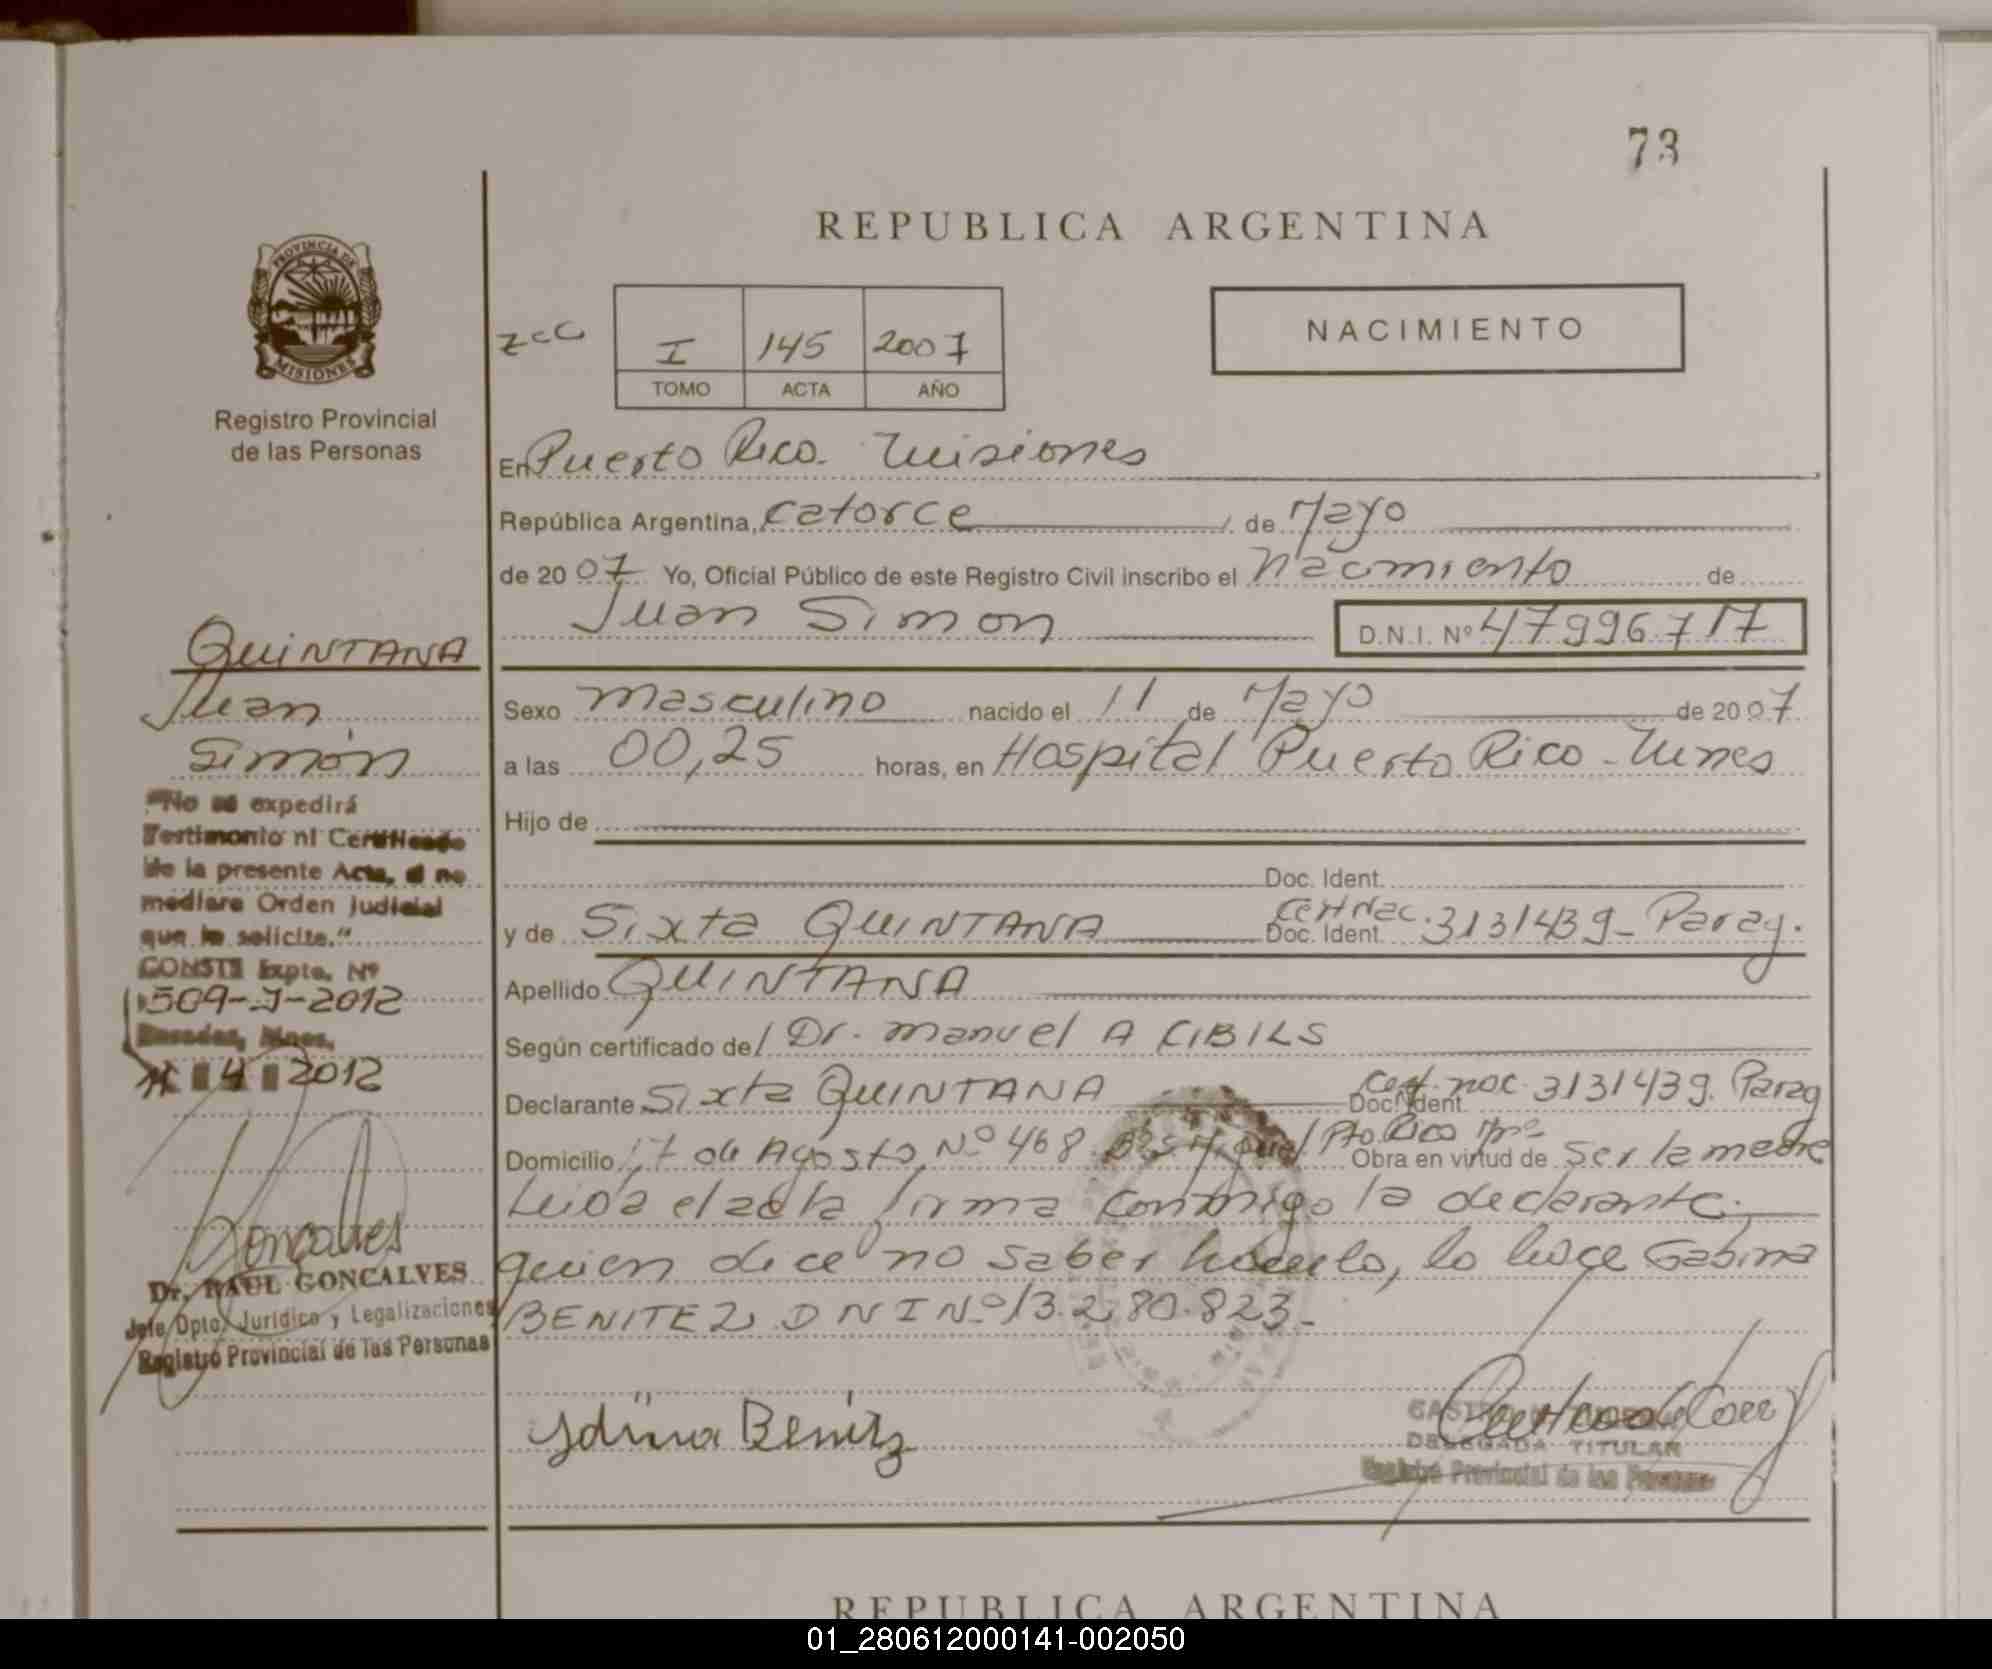 73
REPUBLICA ARGENTINA
PROVINCIA DE
MISIONES
Registro Provincial
de las Personas
I 145 2007
TOMO ACTA AÑO
NACIMIENTO
En Puerto Rico. Misiones
República Argentina, catorce de Mayo
de 2007 Yo, Oficial Público de este Registro Civil inscribo el Nacimiento de
Juan Simon D.N.I. Nº 47996717
QUINTANA
Juan
Simón
Sexo masculino nacido el 11 de Mayo de 2007
a las 00,25 horas, en Hospital Puerto Rico - Mnes
Hijo de
Doc. Ident.
y de Sixta QUINTANA Doc. Ident. Cert Nac. 3131439 - Parag.
Apellido QUINTANA
Según certificado de Dr. Manuel A CIBILS
Declarante Sixta QUINTANA Doc. Ident. Cert. nac. 3131439. Parag
Domicilio 17 de Agosto Nº 468 Pto. Rico Obra en virtud de ser la madre
Leida el acta firma conmigo la declarante.
quien dice no saber hacerlo, lo hace Gabina
BENITEZ DNI Nº 13.280.823.-
"No se expedirá
Testimonio ni Certificado
de la presente Acta, si no
mediare Orden Judicial
que lo solicite."
CONSTE Expte. Nº
509-J-2012
Posadas, Mnes.
4 2012
Goncalves
Dr. RAUL GONCALVES
Jefe Dpto. Jurídico y Legalizaciones
Registro Provincial de las Personas
Benitz
DELEGADA TITULAR
Registro Provincial de las Personas
REPUBLICA ARGENTINA
01_280612000141-002050